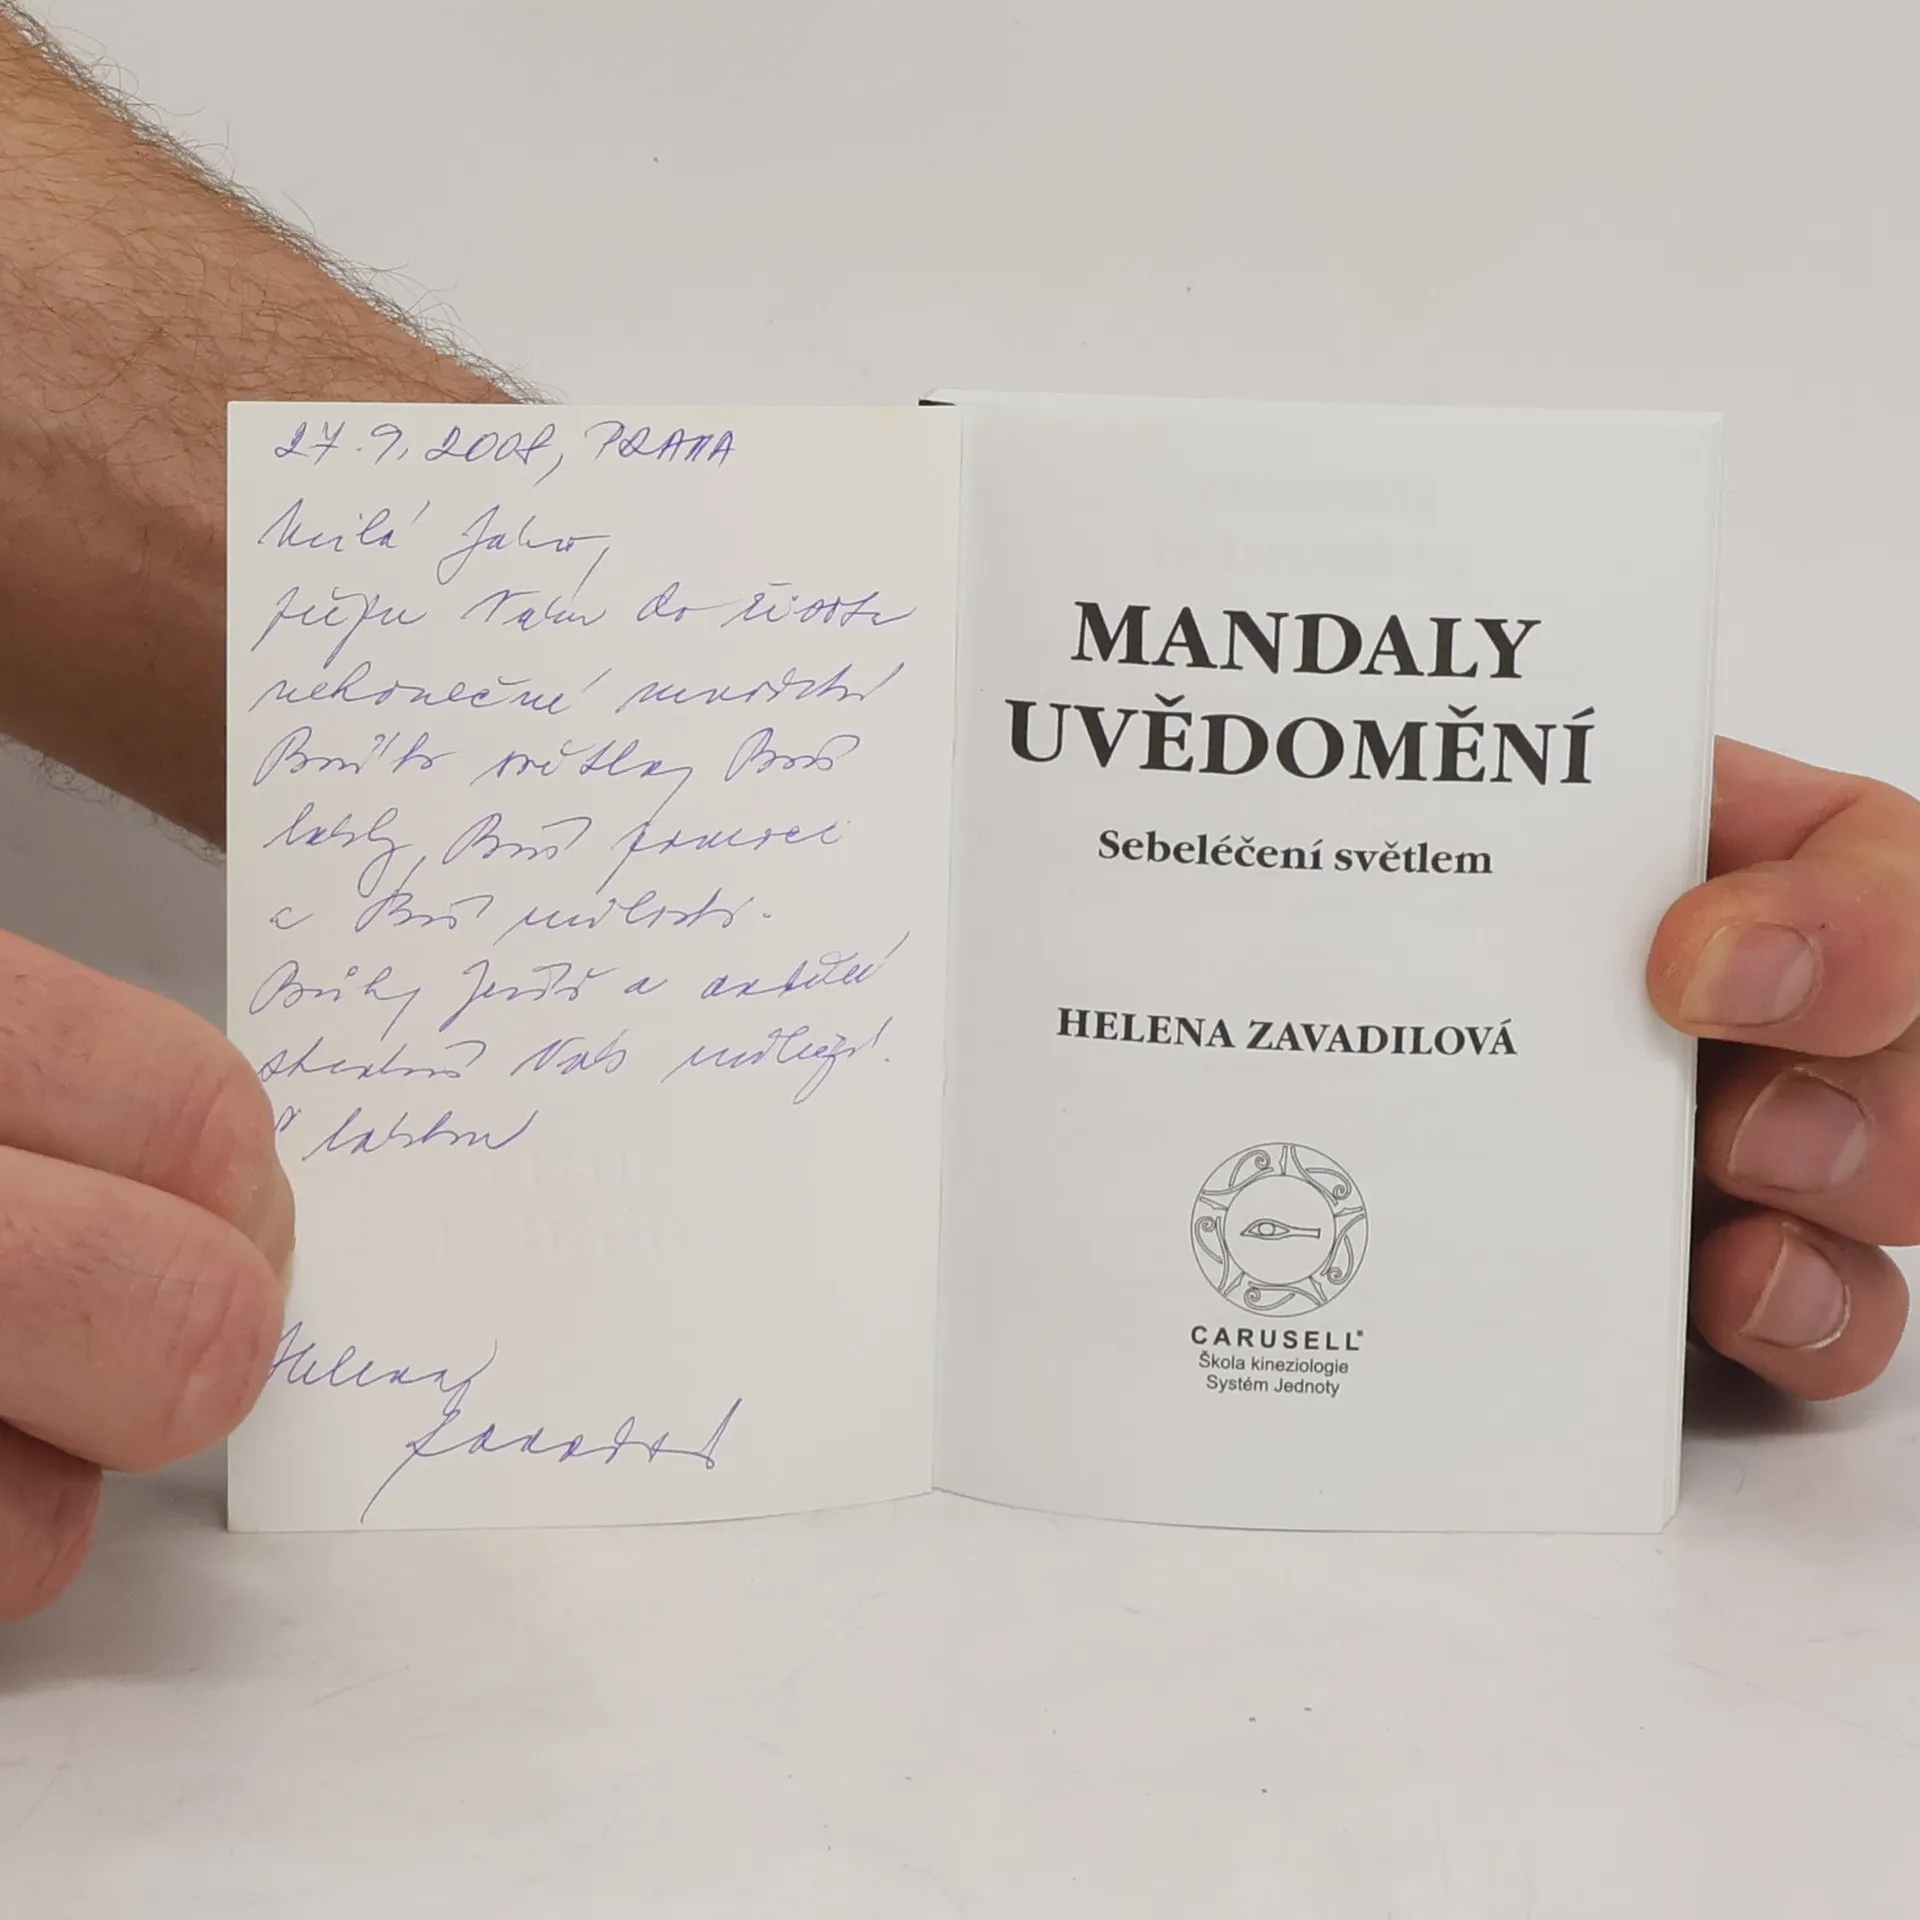 27.9.2008, PRAHA
Milá
přeji Vám do života
nekonečné množství
Božího světla, Boží
lásky, Boží pomoci
a Boží milosti.
Bůh, Ježíš a andělé
Vás milují.
S láskou
Helena
Zavadilová
MANDALY
UVĚDOMĚNÍ
Sebeléčení světlem
HELENA ZAVADILOVÁ
CARUSELL®
Škola kineziologie
Systém Jednoty